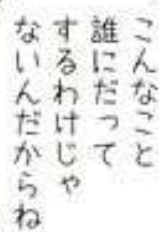 こんなこと
誰にだって
するわけじゃ
ないんだからね